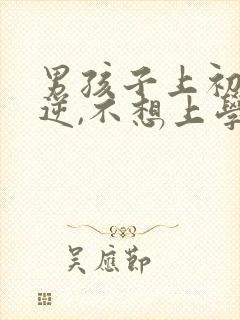 男孩子上初
逆,不想上學
吴應節